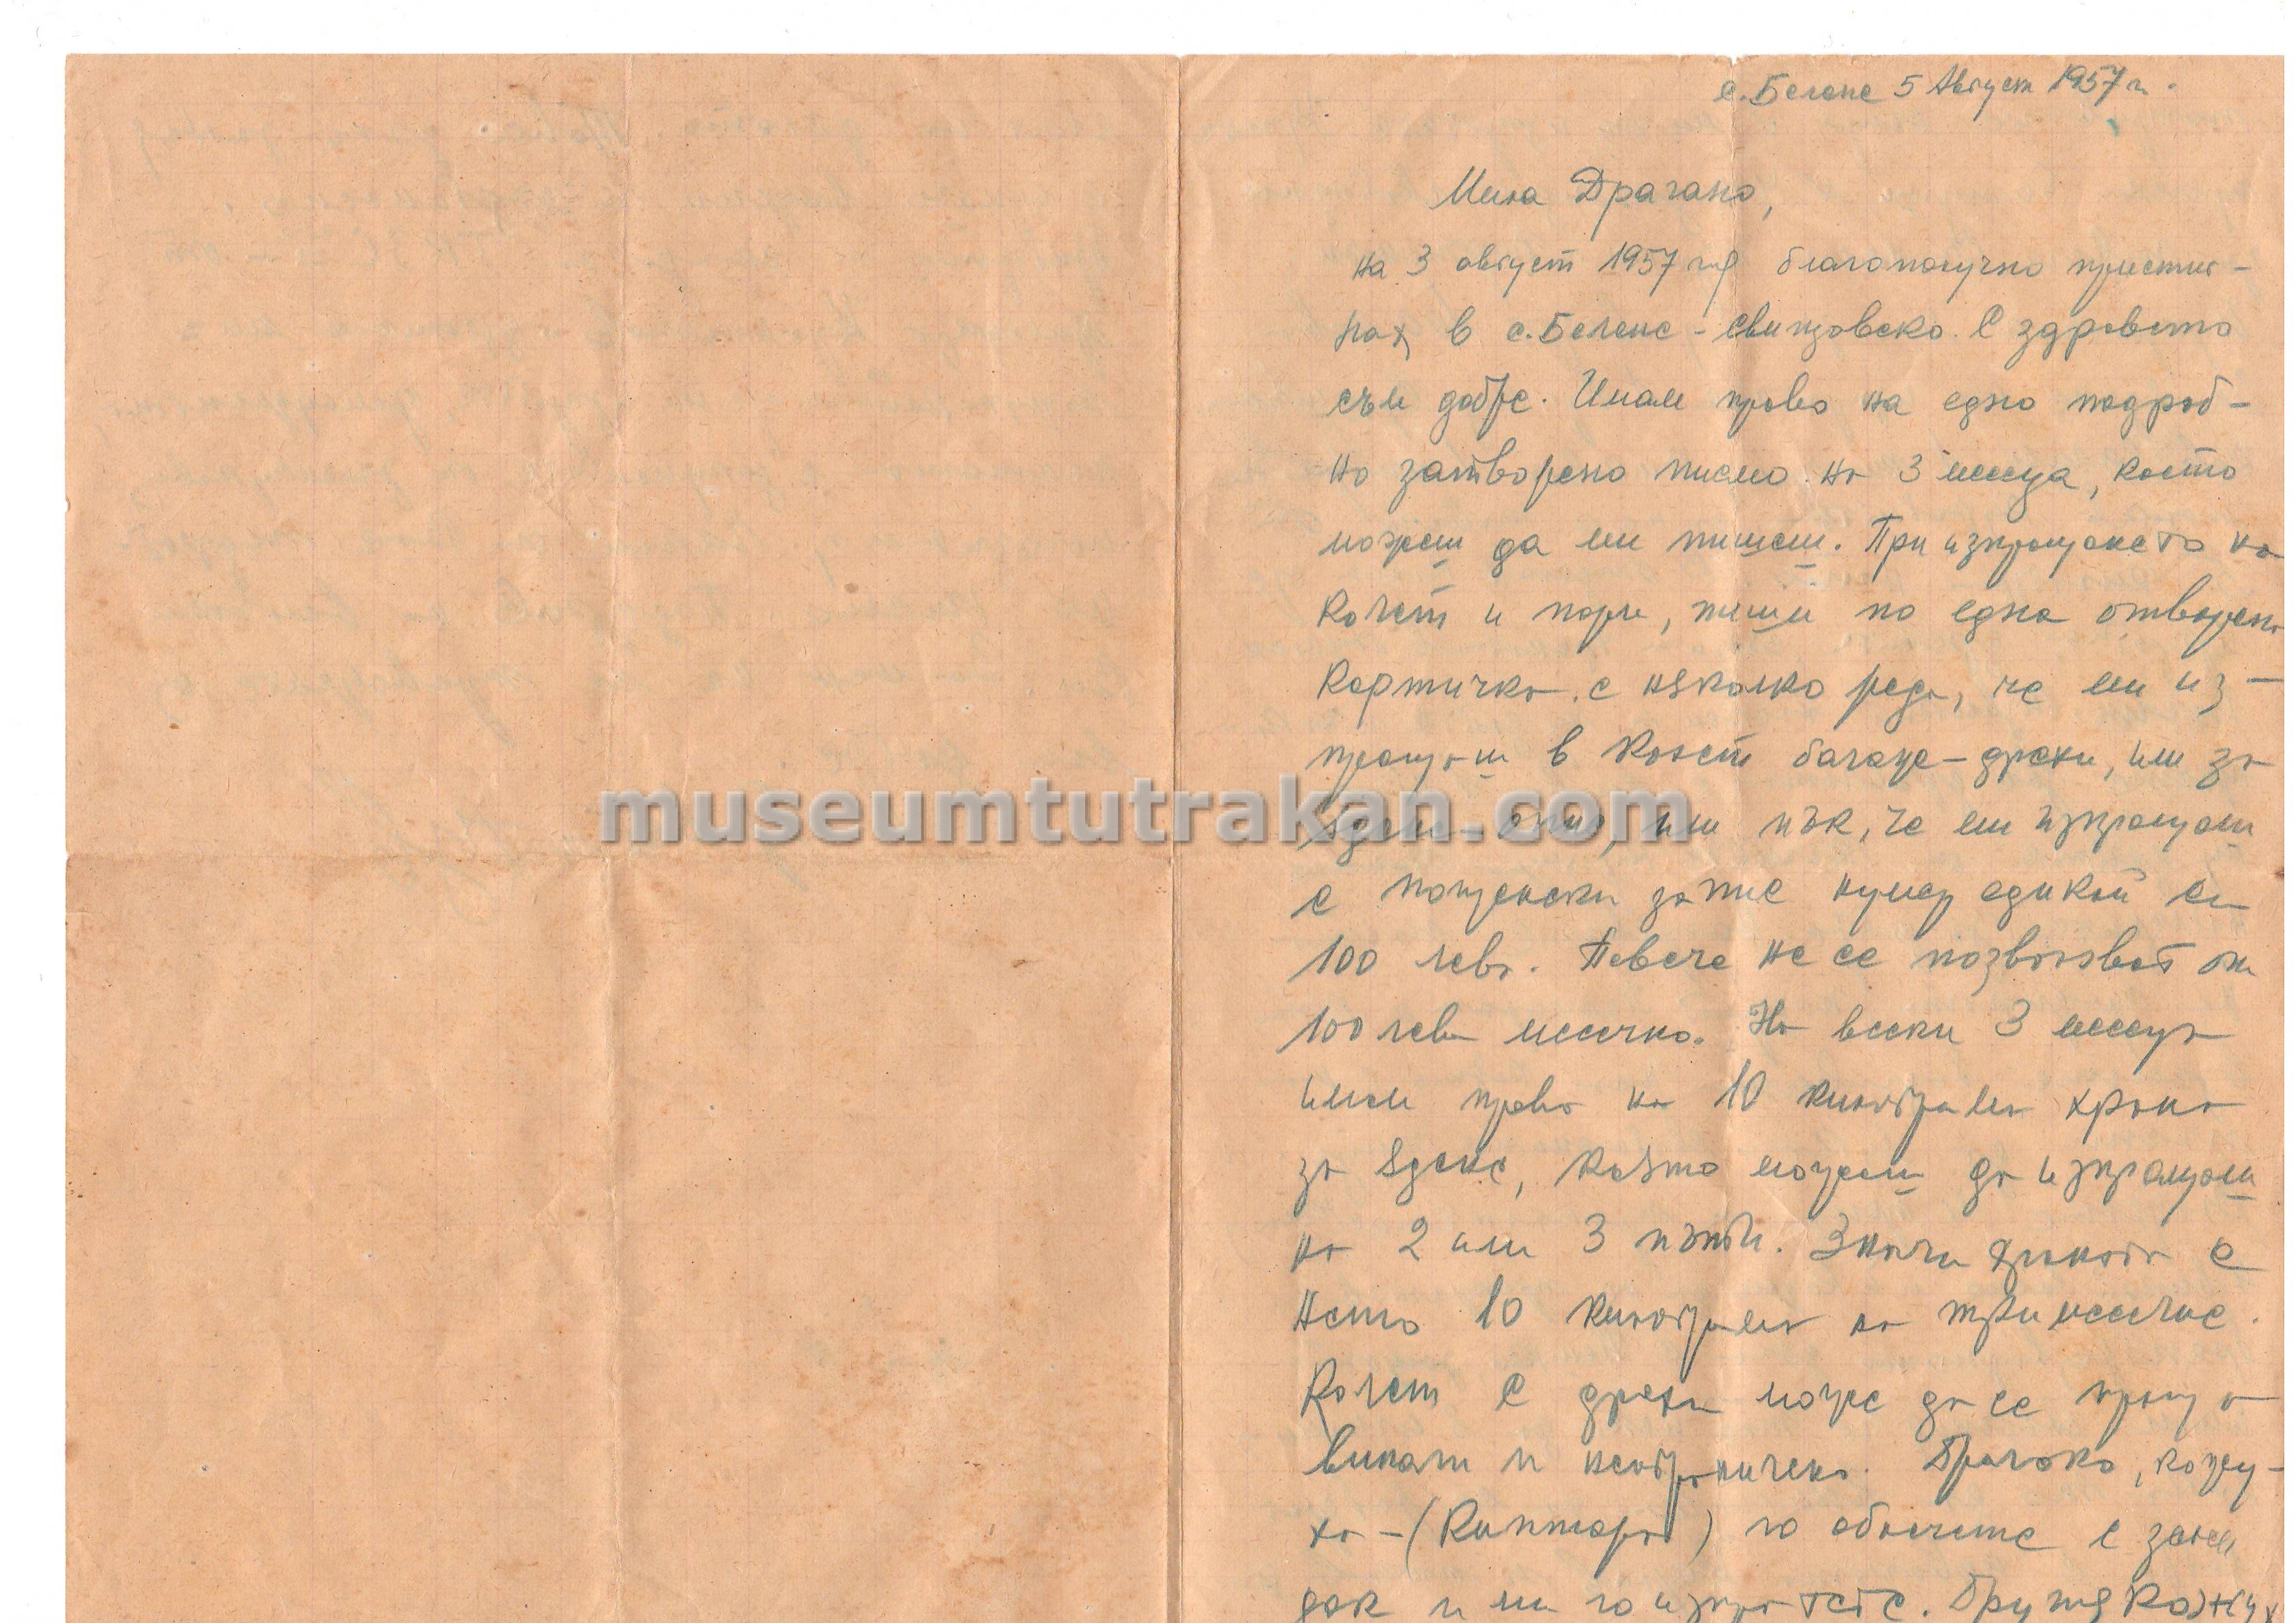 с. Белене 5 Август 1957 г.
Мила Драгано,
на 3 август 1957 год благополучно пристиг-
нах в с. Белене - Свищовско. С здравето
съм добре. Имам право на едно подроб-
но затворено писмо на 3 месеца, което
можеш да ми пишеш. При изпращането на
колет и пари, пиши по една отворена
картичка с няколко реда, че ми из-
пращаш в колет багаж - дрехи, или за
ядене - храна, или пък, че ми изпращаш
с пощенски запис нумер едикой си
100 лева. Повече не се позволяват от
100 лева месечно. На всеки 3 месеца
имам право на 10 килограма храна
за ядене, която можеш да изпращаш
на 2 или 3 пъти. Значи храната е
нето 10 килограма на тримесечие.
Колет с дрехи може да се праща
винаги и неограничено. Драгано, кожу-
ха - (Киптаря) го облечете с зелен
док и ми го изпратете. Другия кожух
museumtutrakan.com